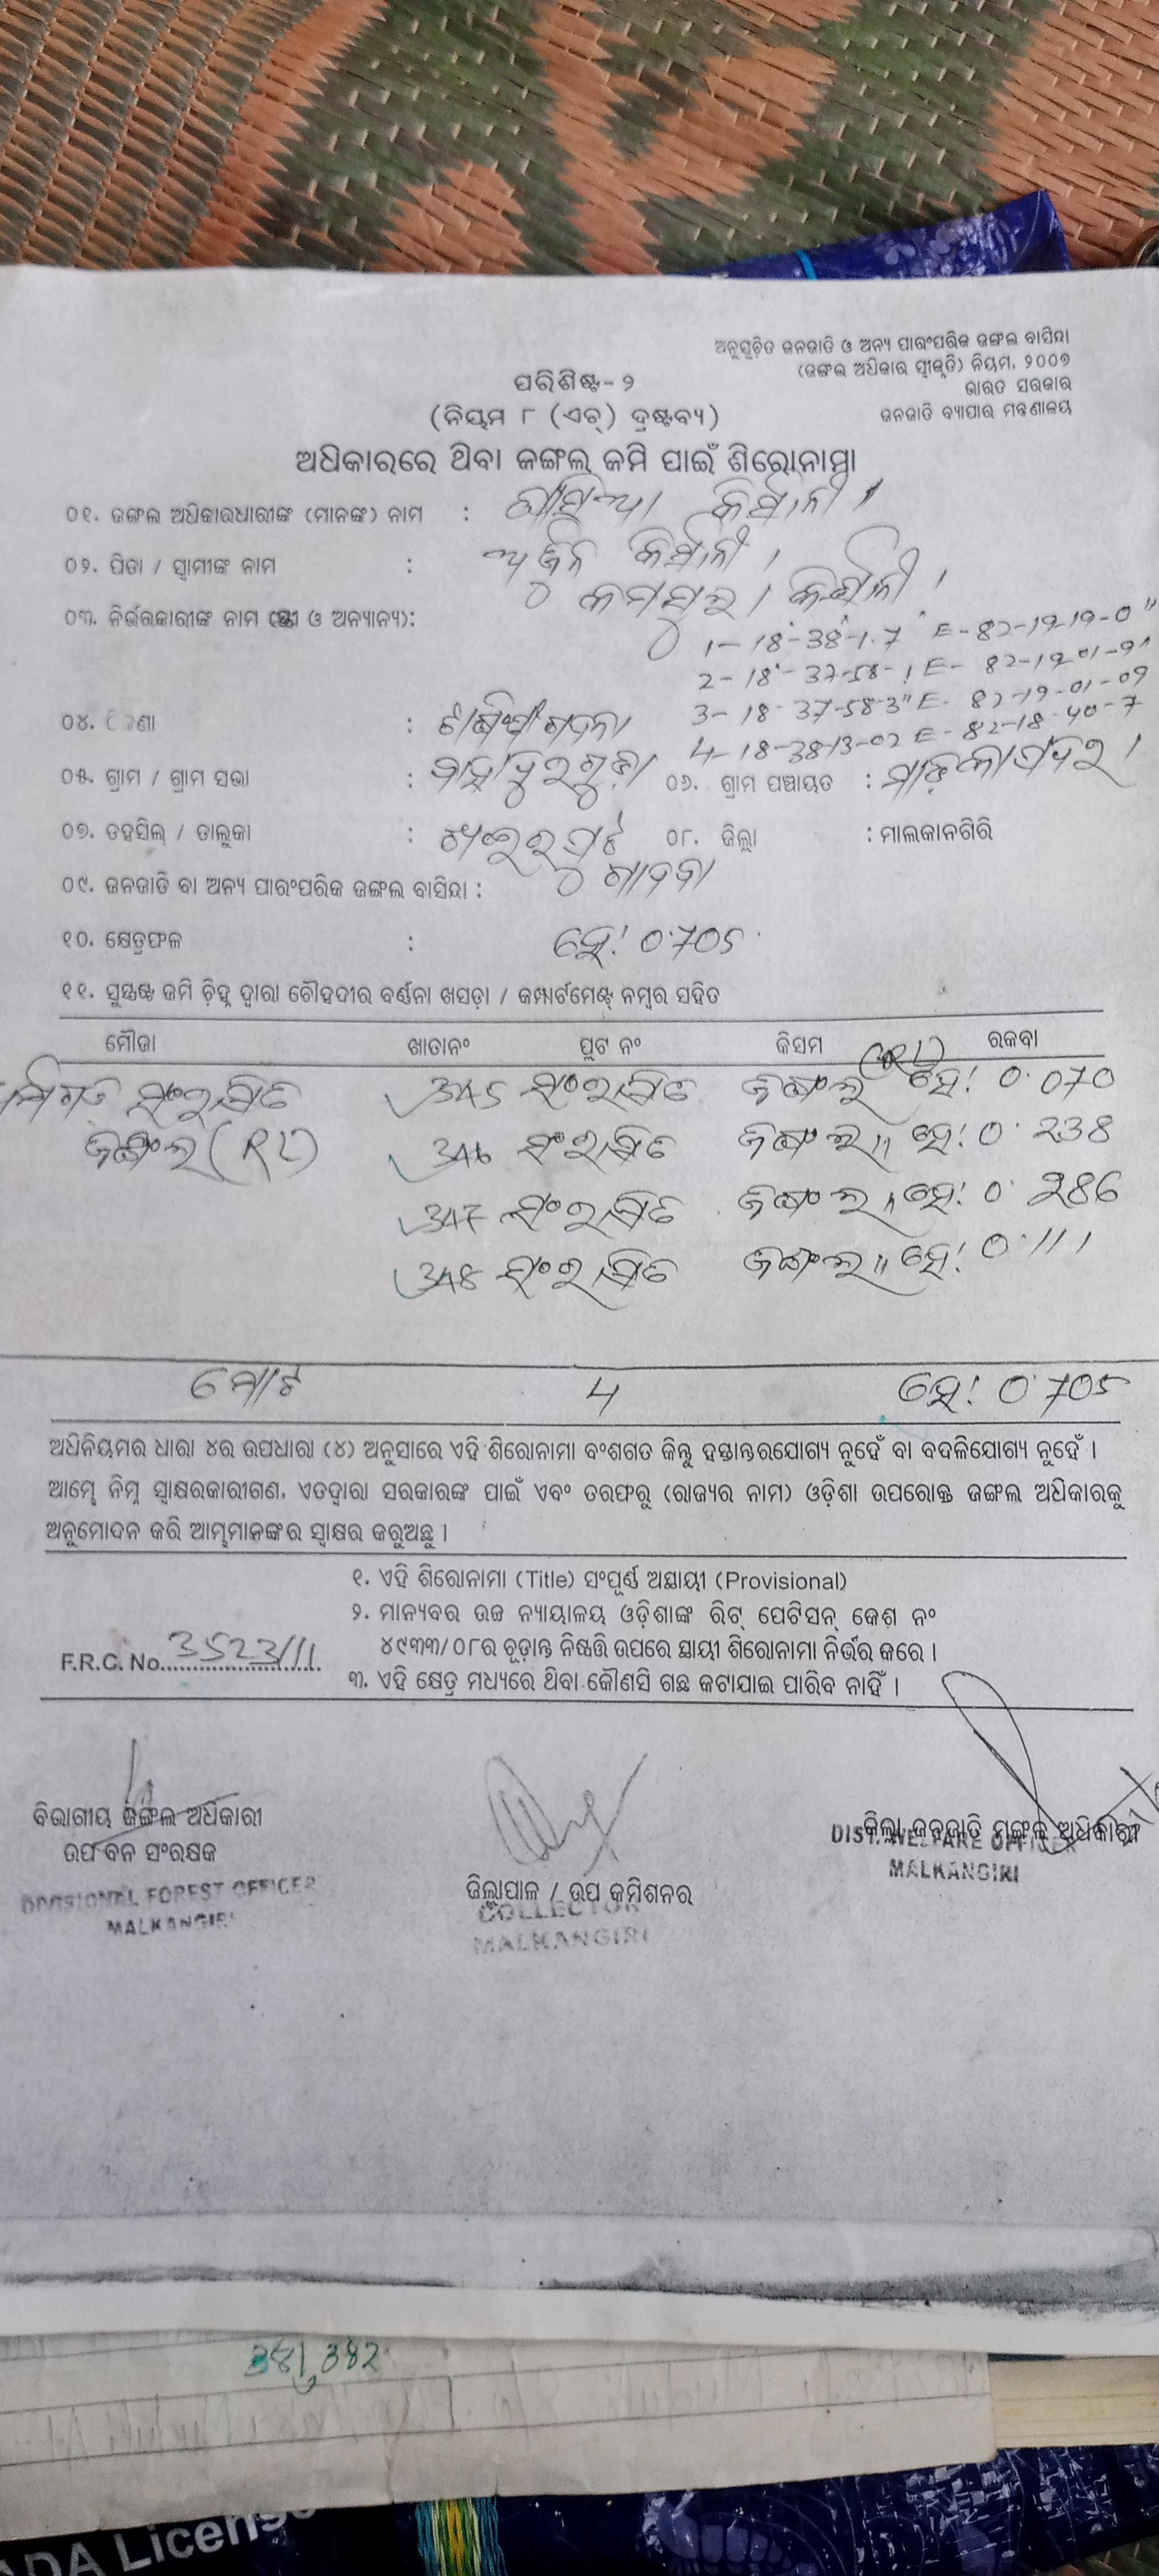 ଅନୁସୂଚିତ ଜନଜାତି ଓ ଅନ୍ୟ ପାରଂପରିକ ଜଙ୍ଗଲ ବାସିନ୍ଦା
(ଜଙ୍ଗଲ ଅଧିକାର ସ୍ୱୀକୃତି) ନିୟମ, ୨୦୦୭
ଭାରତ ସରକାର
ଜନଜାତି ବ୍ୟାପାର ମନ୍ତ୍ରଣାଳୟ
ପରିଶିଷ୍ଟ- ୨
(ନିୟମ ୮ (ଏଚ୍) ଦ୍ରଷ୍ଟବ୍ୟ)
ଅଧିକାରରେ ଥିବା ଜଙ୍ଗଲ ଜମି ପାଇଁ ଶିରୋନାମା
୦୧. ଜଙ୍ଗଲ ଅଧିକାରଧାରୀଙ୍କ (ମାନଙ୍କ) ନାମ :
୦୨. ପିତା / ସ୍ୱାମୀଙ୍କ ନାମ :
୦୩. ନିର୍ଭରକାରୀଙ୍କ ନାମ (ସ୍ତ୍ରୀ ଓ ଅନ୍ୟାନ୍ୟ):
1- 18-38-1.7 E- 82-19-19-0"
2- 18-37-58-1 E- 82-19-01-9"
3- 18-37-58-3" E- 82-19-01-09
4-18-3813-02 E- 82-18-40-7
୦୪. :
୦୫. ଗ୍ରାମ / ଗ୍ରାମ ସଭା : ୦୬. ଗ୍ରାମ ପଞ୍ଚାୟତ :
୦୭. ତହସିଲ୍ / ତାଲୁକା : ୦୮. ଜିଲ୍ଲା : ମାଲକାନଗିରି
୦୯. ଜନଜାତି ବା ଅନ୍ୟ ପାରଂପରିକ ଜଙ୍ଗଲ ବାସିନ୍ଦା :
୧୦. କ୍ଷେତ୍ରଫଳ : ହେ! 0.705
୧୧. ସୁସ୍ପଷ୍ଟ ଜମି ଚିହ୍ନ ଦ୍ୱାରା ଚୌହଦୀର ବର୍ଣ୍ଣନା ଖସଡ଼ା / କମ୍ପାର୍ଟମେଣ୍ଟ୍ ନମ୍ବର ସହିତ
ମୌଜା ଖାତାନଂ ପ୍ଲଟ ନଂ କିସମ ରକବା
(RL)
ସଂରକ୍ଷିତ 345 ସଂରକ୍ଷିତ ଜଙ୍ଗଲ ହେ! 0.070
ଜଙ୍ଗଲ (RL) 346 ସଂରକ୍ଷିତ ଜଙ୍ଗଲ " ହେ! 0.238
347 ସଂରକ୍ଷିତ ଜଙ୍ଗଲ " ହେ! 0.286
348 ସଂରକ୍ଷିତ ଜଙ୍ଗଲ " ହେ! 0.111
ମୋଟ 4 ହେ! 0.705
ଅଧିନିୟମର ଧାରା ୪ର ଉପଧାରା (୪) ଅନୁସାରେ ଏହି ଶିରୋନାମା ବଂଶଗତ କିନ୍ତୁ ହସ୍ତାନ୍ତରଯୋଗ୍ୟ ନୁହେଁ ବା ବଦଳିଯୋଗ୍ୟ ନୁହେଁ ।
ଆମ୍ଭେ ନିମ୍ନ ସ୍ୱାକ୍ଷରକାରୀଗଣ, ଏତଦ୍ୱାରା ସରକାରଙ୍କ ପାଇଁ ଏବଂ ତରଫରୁ (ରାଜ୍ୟର ନାମ) ଓଡ଼ିଶା ଉପରୋକ୍ତ ଜଙ୍ଗଲ ଅଧିକାରକୁ
ଅନୁମୋଦନ କରି ଆମ୍ଭମାନଙ୍କର ସ୍ୱାକ୍ଷର କରୁଅଛୁ ।
୧. ଏହି ଶିରୋନାମା (Title) ସଂପୂର୍ଣ୍ଣ ଅସ୍ଥାୟୀ (Provisional)
୨. ମାନ୍ୟବର ଉଚ୍ଚ ନ୍ୟାୟାଳୟ ଓଡ଼ିଶାଙ୍କ ରିଟ୍ ପେଟିସନ୍ କେଶ୍ ନଂ
୪୯୩୩/୦୮ର ଚୂଡ଼ାନ୍ତ ନିଷ୍ପତ୍ତି ଉପରେ ସ୍ଥାୟୀ ଶିରୋନାମା ନିର୍ଭର କରେ ।
F.R.C. No. 3523/11
୩. ଏହି କ୍ଷେତ୍ର ମଧ୍ୟରେ ଥିବା କୌଣସି ଗଛ କଟାଯାଇ ପାରିବ ନାହିଁ ।
ବିଭାଗୀୟ ଜଙ୍ଗଲ ଅଧିକାରୀ
ଉପ ବନ ସଂରକ୍ଷକ
DIVISIONAL FOREST OFFICER
MALKANGIRI
ଜିଲ୍ଲାପାଳ / ଉପ କମିଶନର
COLLECTOR
MALKANGIRI
ଜିଲ୍ଲା ଜନଜାତି ମଙ୍ଗଳ ଅଧିକାରୀ
DIST. WELFARE OFFICER
MALKANGIRI
381, 382
ADA License